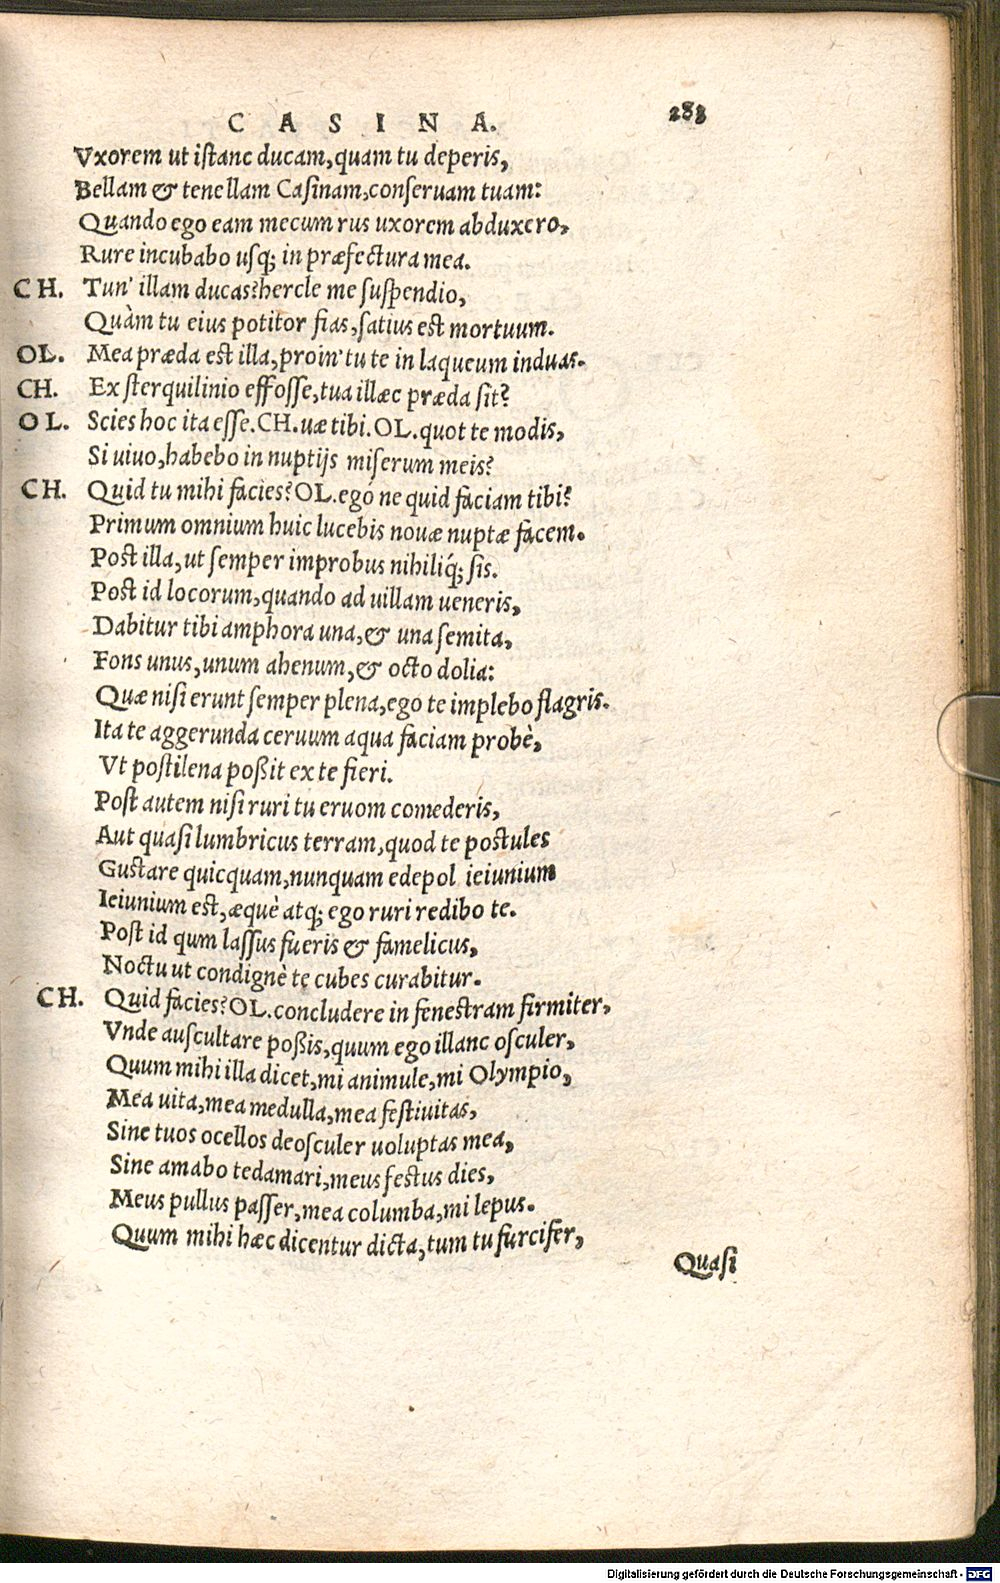 CASINA. 283
Vxorem ut istanc ducam, quam tu deperis,
Bellam & tenellam Casinam, conseruam tuam:
Quando ego eam mecum rus uxorem abduxero,
Rure incubabo usq; in præfectura mea.
CH. Tun' illam ducas? hercle me suspendio,
Quàm tu eius potitor fias, satius est mortuum.
OL. Mea præda est illa, proin' tu te in laqueum induas.
CH. Ex sterquilinio effosse, tua illæc præda sit?
OL. Scies hoc ita esse. CH. uæ tibi. OL. quot te modis,
Si uiuo, habebo in nuptijs miserum meis?
CH. Quid tu mihi facies? OL. egó ne quid faciam tibi?
Primum omnium huic lucebis nouæ nuptæ facem.
Post illa, ut semper improbus nihiliq́; sis.
Post id locorum, quando ad uillam ueneris,
Dabitur tibi amphora una, & una semita,
Fons unus, unum ahenum, & octo dolia:
Quæ nisi erunt semper plena, ego te implebo flagris.
Ita te aggerunda ceruum aqua faciam probè,
Vt postilena poßit ex te fieri.
Post autem nisi ruri tu eruom comederis,
Aut quasi lumbricus terram, quod te postules
Gustare quicquam, nunquam edepol ieiunium
Ieiunium est, æquè atq; ego ruri redibo te.
Post id qum lassus fueris & famelicus,
Noctu ut condignè te cubes curabitur.
CH. Quid facies? OL. concludere in fenestram firmiter,
Vnde auscultare poßis, quum ego illanc osculer,
Quum mihi illa dicet, mi animule, mi Olympio,
Mea uita, mea medulla, mea festiuitas,
Sine tuos ocellos deosculer uoluptas mea,
Sine amabo te damari, meus festus dies,
Meus pullus passer, mea columba, mi lepus.
Quum mihi hæc dicentur dicta, tum tu furcifer,
Quasi
Digitalisierung gefördert durch die Deutsche Forschungsgemeinschaft - DFG